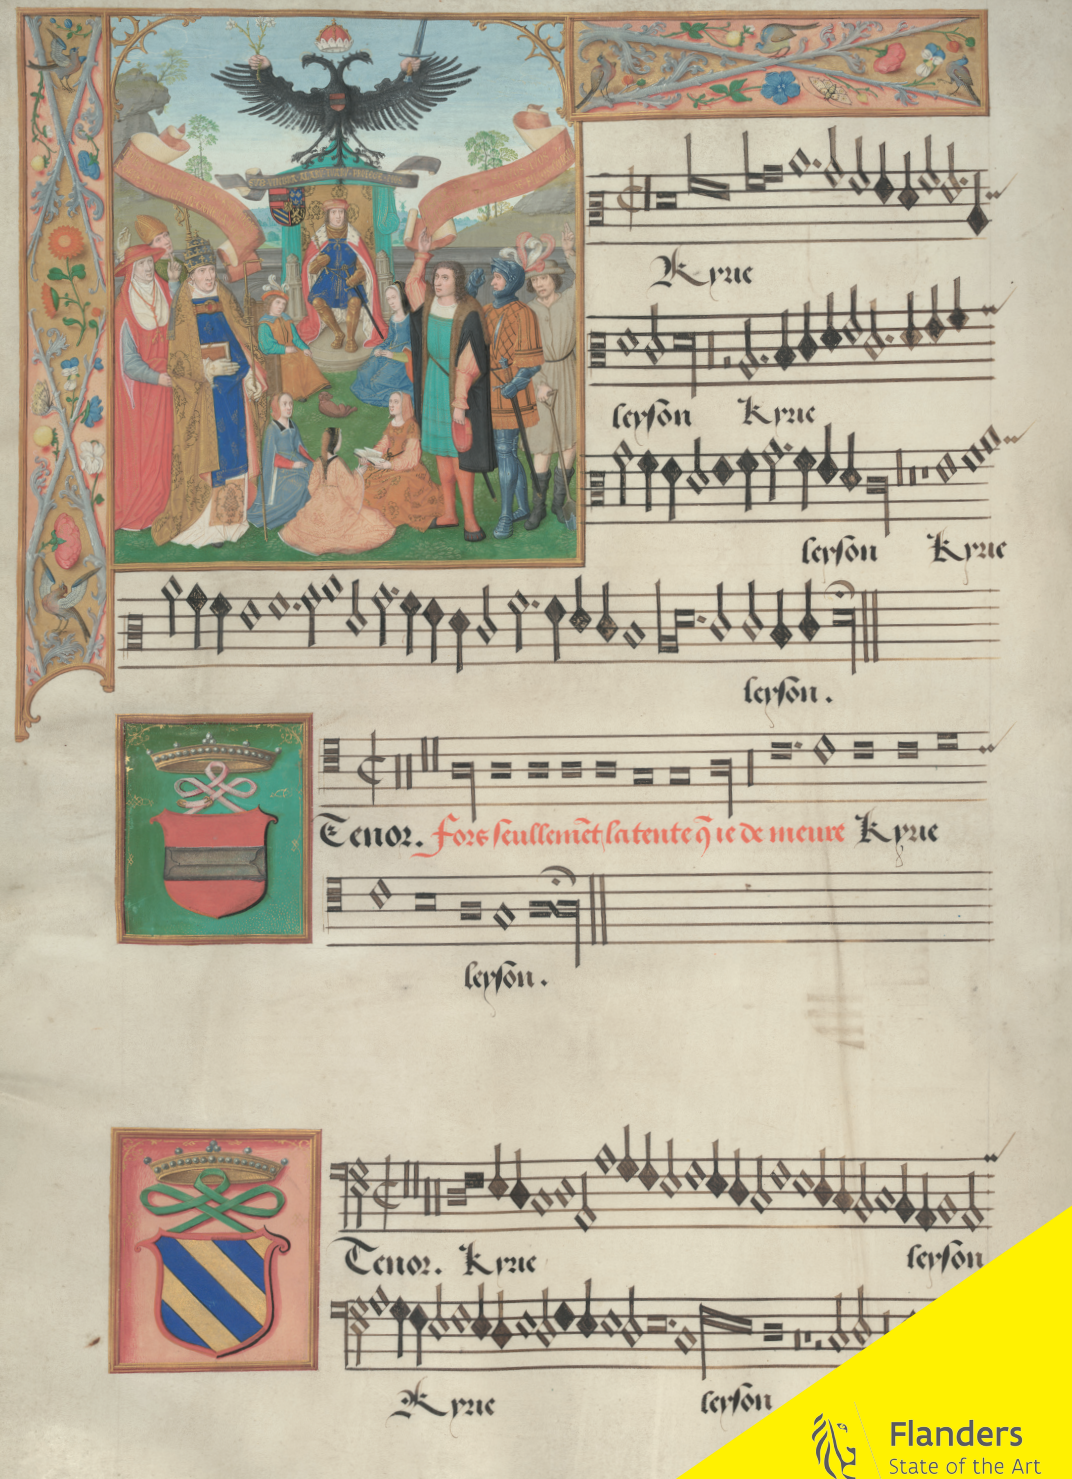 Kyrie
leyson Kyrie
leyson Kyrie
leyson.
Tenor. Fors seullem̄et latente q̄ ie de meure Kyrie
leyson.
Tenor. Kyrie leyson
Kyrie leyson
Flanders
State of the Art